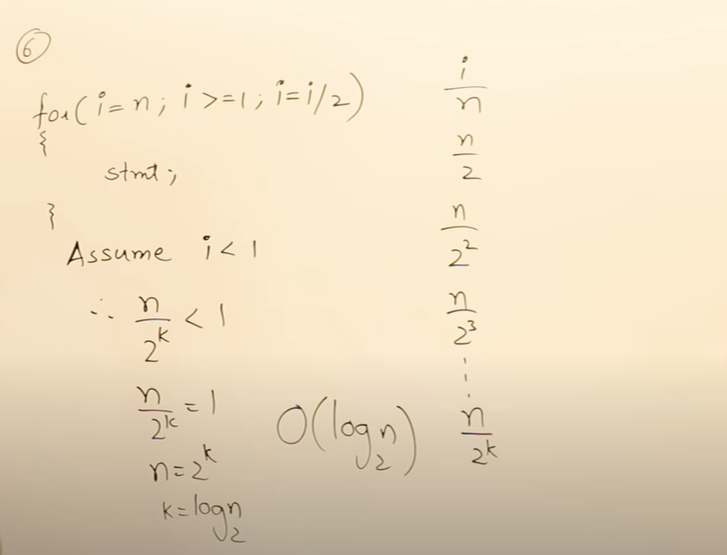 6
for(i=n; i>=1; i=i/2)
{
stmt;
}
Assume i<1
∴ n/2^k < 1
n/2^k = 1
n=2^k
k=log₂n
O(log₂n)
i
n
n/2
n/2^2
n/2^3
n/2^k